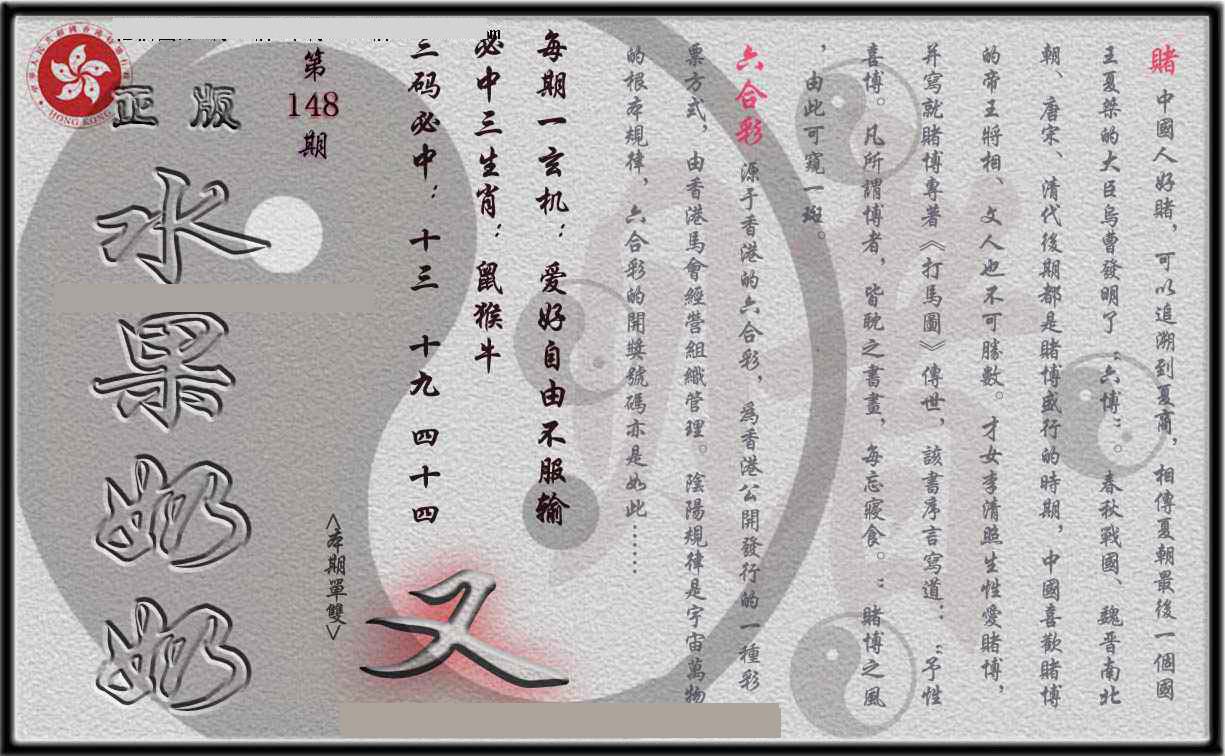 賭 中國人好賭，可以追溯到夏商，相傳夏朝最後一個國
王夏桀的大臣烏曹發明了“六博”。春秋戰國、魏晋南北
朝、唐宋、清代後期都是賭博盛行的時期，中國喜歡賭博
的帝王將相、文人也不可勝數。才女李清照生性愛賭博，
并寫就賭博專著《打馬圖》傳世，該書序言寫道：“予性
喜博。凡所謂博者，皆耽之書畫，每忘寢食。”賭博之風
，由此可窺一斑。
六合彩 源于香港的六合彩，為香港公開發行的一種彩
票方式，由香港馬會經營組織管理。陰陽規律是宇宙萬物
的根本規律，六合彩的開獎號碼亦是如此……
每期一玄机：爱好自由不服输
必中三生肖：鼠猴牛
三码必中：十三 十九 四十四
第148期
<本期單雙>
又
正版
水果奶奶
HONG KONG